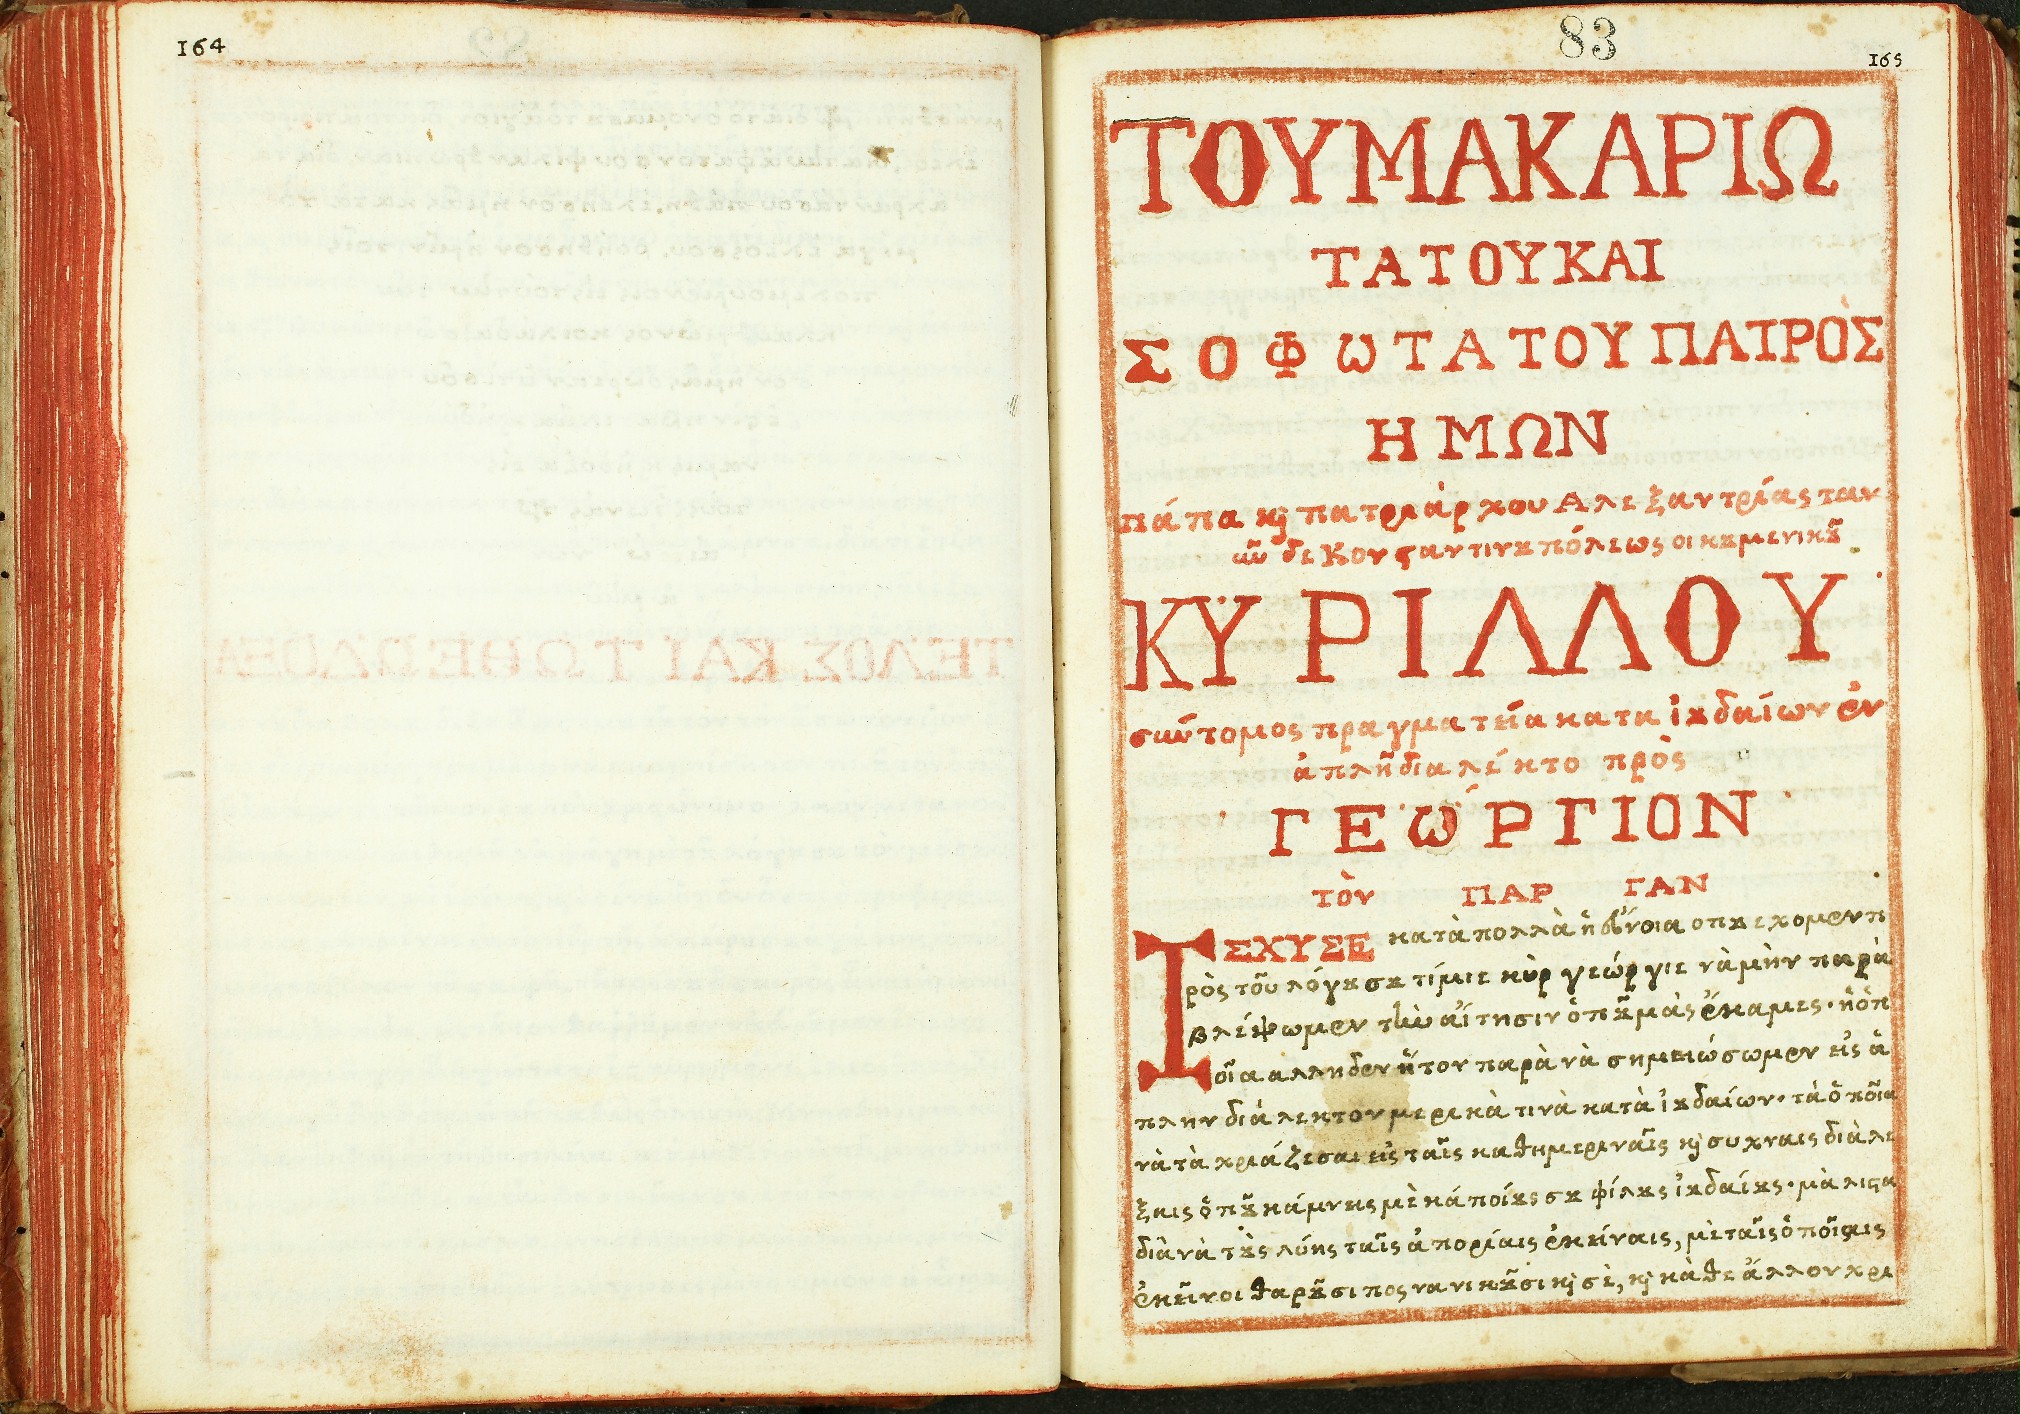 164
83
165
ΤΟΥ ΜΑΚΑΡΙΩ
ΤΑΤΟΥ ΚΑΙ
ΣΟΦΩΤΑΤΟΥ ΠΑΤΡῸΣ
ΗΜΩΝ
πάπα κ̀ πατριάρχου Αλεξαντρίας ταν
ῦν δε Κονϛαντινȣπόλεως οικȣμενικȣ͂
ΚΫΡΙΛΛΟΥ
σύντομος πραγματεία κατα ἰȣδαίων ἐν
ἁπλῆ διαλέκτο πρὸς
ΓΕΏΡΓΙΟΝ
τὸν ΠΑΡΓΑΝ
ἸΣΧΥΣΕ κατὰ πολλὰ ἡ εὔνοια οπȣ εχομεν π
ρὸς τοῦ λόγȣ σȣ τίμιε κὺρ γεώργιε νὰ μὴν παρὰ
βλέψωμεν τὴν αἴτησιν ὁπȣ͂ μὰς ἔκαμες· ἡ ὁπ
οῖα αλλη δεν ἤτον παρὰ νὰ σημειώσωμεν εἰς ἁ
πλην διάλεκτον μερικὰ τινὰ κατὰ ἰȣδαίων· τὰ ὁποῖα
νὰ τὰ χριάζεσαι εἰς ταῖς καθημεριναῖς κ̀ συχναις διαλε
ξεις ὁπȣ͂ κάμνεις μὲ κάποίȣς σȣ φίλȣς ἰȣδαίȣς· μάλιϛα
διὰ νὰ τȣ̀ς λύης ταῖς ἀπορίαις ἐκείναις, μὲ ταῖς ὁποῖαις
ἐκεῖνοι θαρȣ͂σι πος να νικȣ͂σι κ̀ σὲ, κ̀ κὰθε ἄλλον χρι